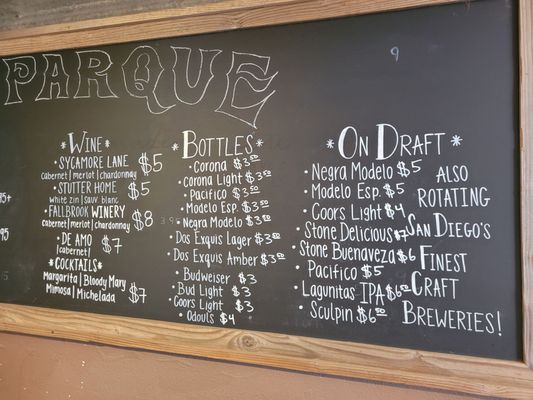 PARQUE
9
* WINE *
• SYCAMORE LANE $5
cabernet | merlot | chardonnay
• STUTTER HOME $5
white zin | sauv. blanc
• FALLBROOK WINERY $8
cabernet | merlot | chardonnay
• DE AMO $7
|cabernet|
* COCKTAILS *
Margarita | Bloody Mary $7
Mimosa | Michelada
* BOTTLES *
• Corona $3.50
• Corona Light $3.50
• Pacifico $3.50
• Modelo Esp $3.50
• Negra Modelo $3.50
• Dos Exquis Lager $3.50
• Dos Exquis Amber $3.50
• Budweiser $3
• Bud Light $3
• Coors Light $3
• Odouls $4
* ON DRAFT *
• Negra Modelo $5
• Modelo Esp. $5
• Coors Light $4
• Stone Delicious $7
• Stone Buenaveza $6
• Pacifico $5
• Lagunitas IPA $6.50
• Sculpin $6.50
ALSO
ROTATING
SAN DIEGO'S
FINEST
CRAFT
BREWERIES!